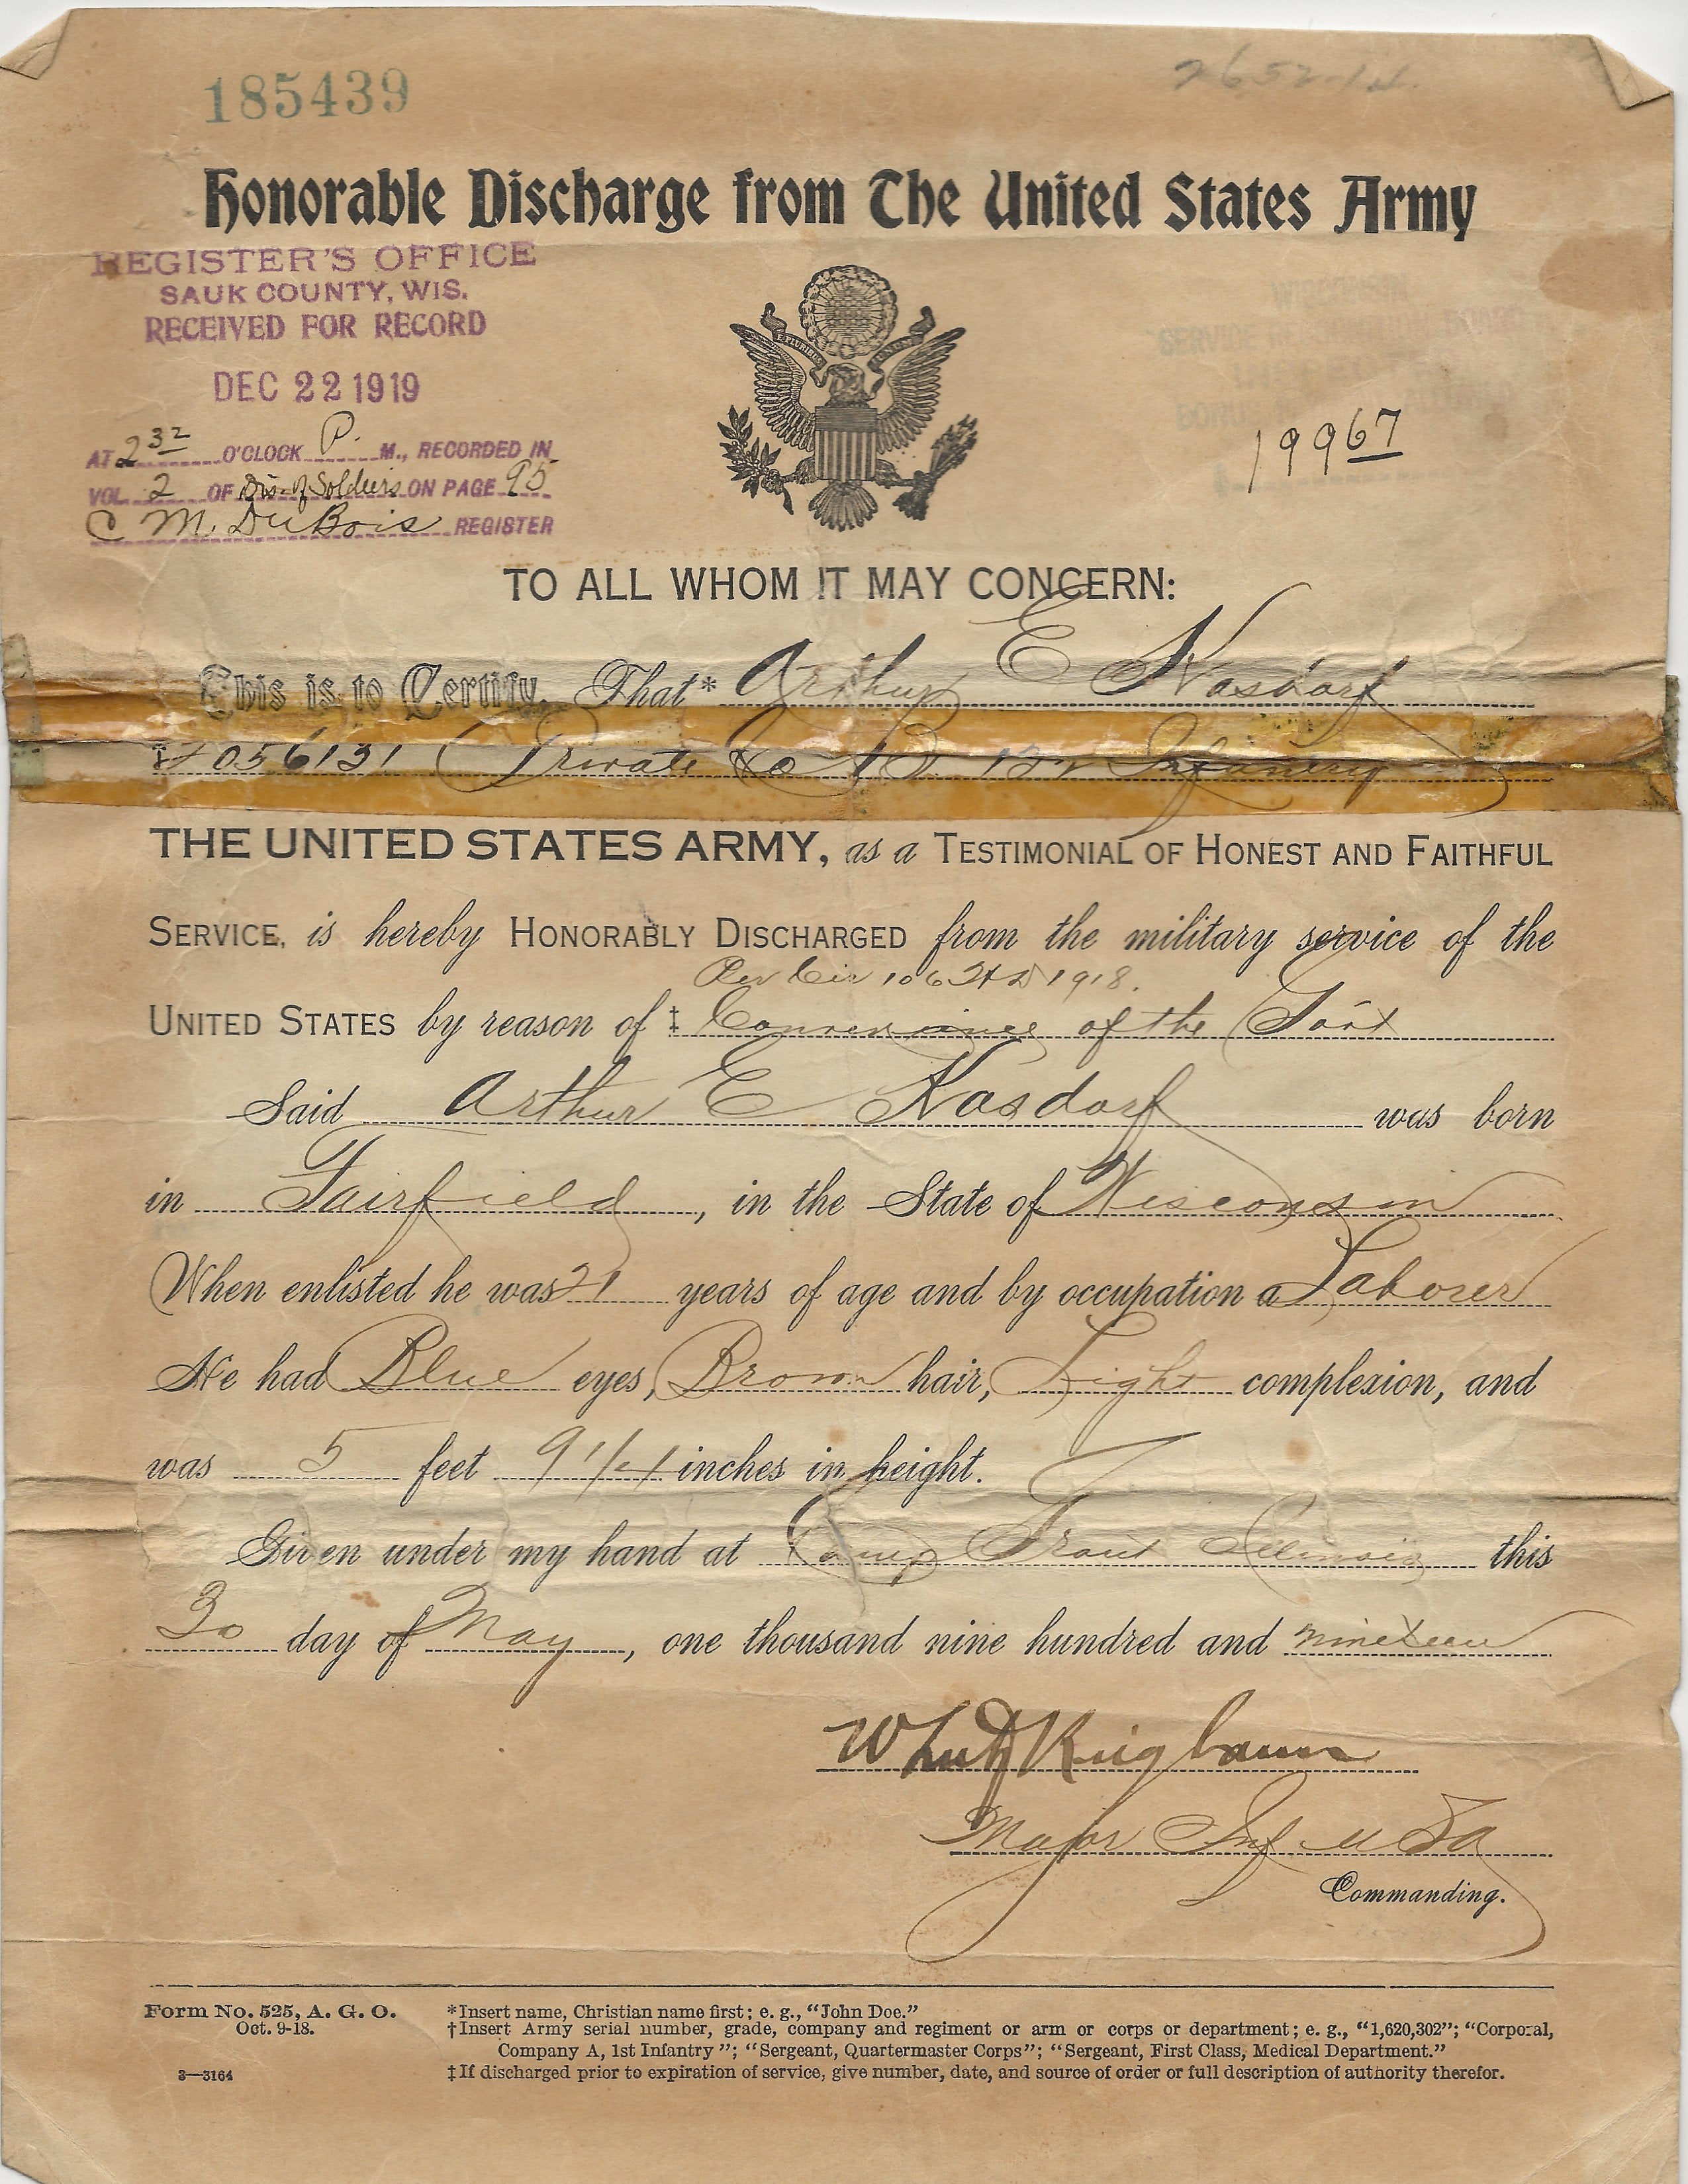 185439
2652-14
Honorable Discharge from The United States Army
REGISTER'S OFFICE
SAUK COUNTY, WIS.
RECEIVED FOR RECORD
DEC 22 1919
AT 2 32 O'CLOCK P. M., RECORDED IN
VOL. 2 OF Dis. of Soldiers ON PAGE 95
C M. DuBois REGISTER
E PLURIBUS UNUM
19967
TO ALL WHOM IT MAY CONCERN:
This is to Certify, That* Arthur E Kasdorf
† 056131 Private Co B Infantry
THE UNITED STATES ARMY, as a TESTIMONIAL OF HONEST AND FAITHFUL
SERVICE, is hereby HONORABLY DISCHARGED from the military service of the
Per Cir 106 W D 1918.
UNITED STATES by reason of ‡ Convenience of the Govt
Said Arthur E Kasdorf was born
in Fairfield, in the State of Wisconsin
When enlisted he was 21 years of age and by occupation a Laborer
He had Blue eyes, Brown hair, Light complexion, and
was 5 feet 9 1/4 inches in height.
Given under my hand at Camp Grant Illinois this
30 day of May, one thousand nine hundred and nineteen
Major Inf USA
Commanding.
Form No. 525, A. G. O.
Oct. 9-18.
3—3164
*Insert name, Christian name first; e. g., "John Doe."
†Insert Army serial number, grade, company and regiment or arm or corps or department; e. g., "1,620,302"; "Corporal,
Company A, 1st Infantry"; "Sergeant, Quartermaster Corps"; "Sergeant, First Class, Medical Department."
‡If discharged prior to expiration of service, give number, date, and source of order or full description of authority therefor.